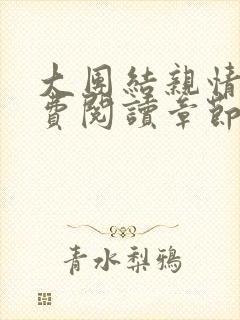 大團結親情
費閱讀章節
青水梨鴉